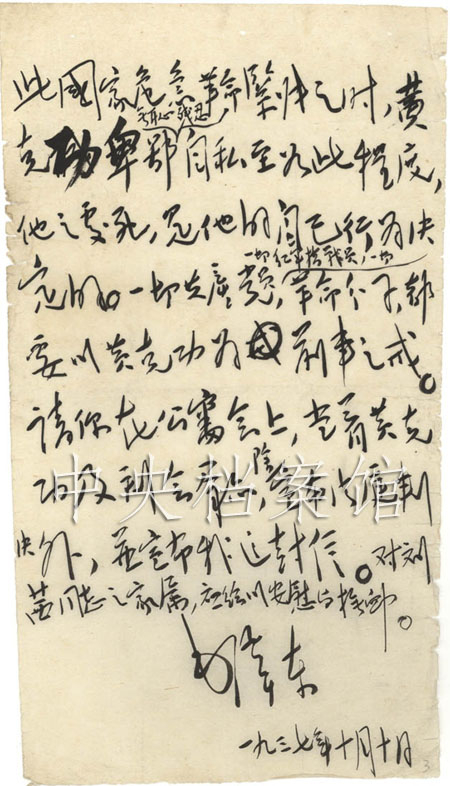 此國家危急革命緊張之时，黄
无耻残忍
克功卑鄙自私至如此程度，
他之處死，是他的自己行为决
一切红军指战員，一切
定的。一切共產党員，革命分子，都
要以黄克功为前車之戒。
請你在公審会上，当着黄克
除
功及到会群众，宣布法庭判
中央档案馆
决外，並宣布我这封信。对刘
茜同志之家属，应给以安慰与撫卹。
毛澤东
一九三七年十月十日
3